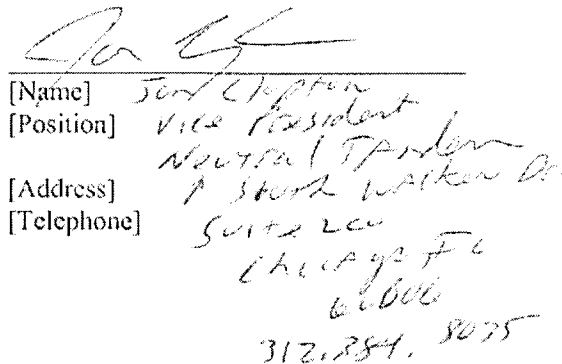 [Name] Jon Clopton
[Position] Vice President
Neutral Tandem
[Address] 1 South Wacker Dr
[Telephone] Suite 200
Chicago IL
60606
312.384.8035